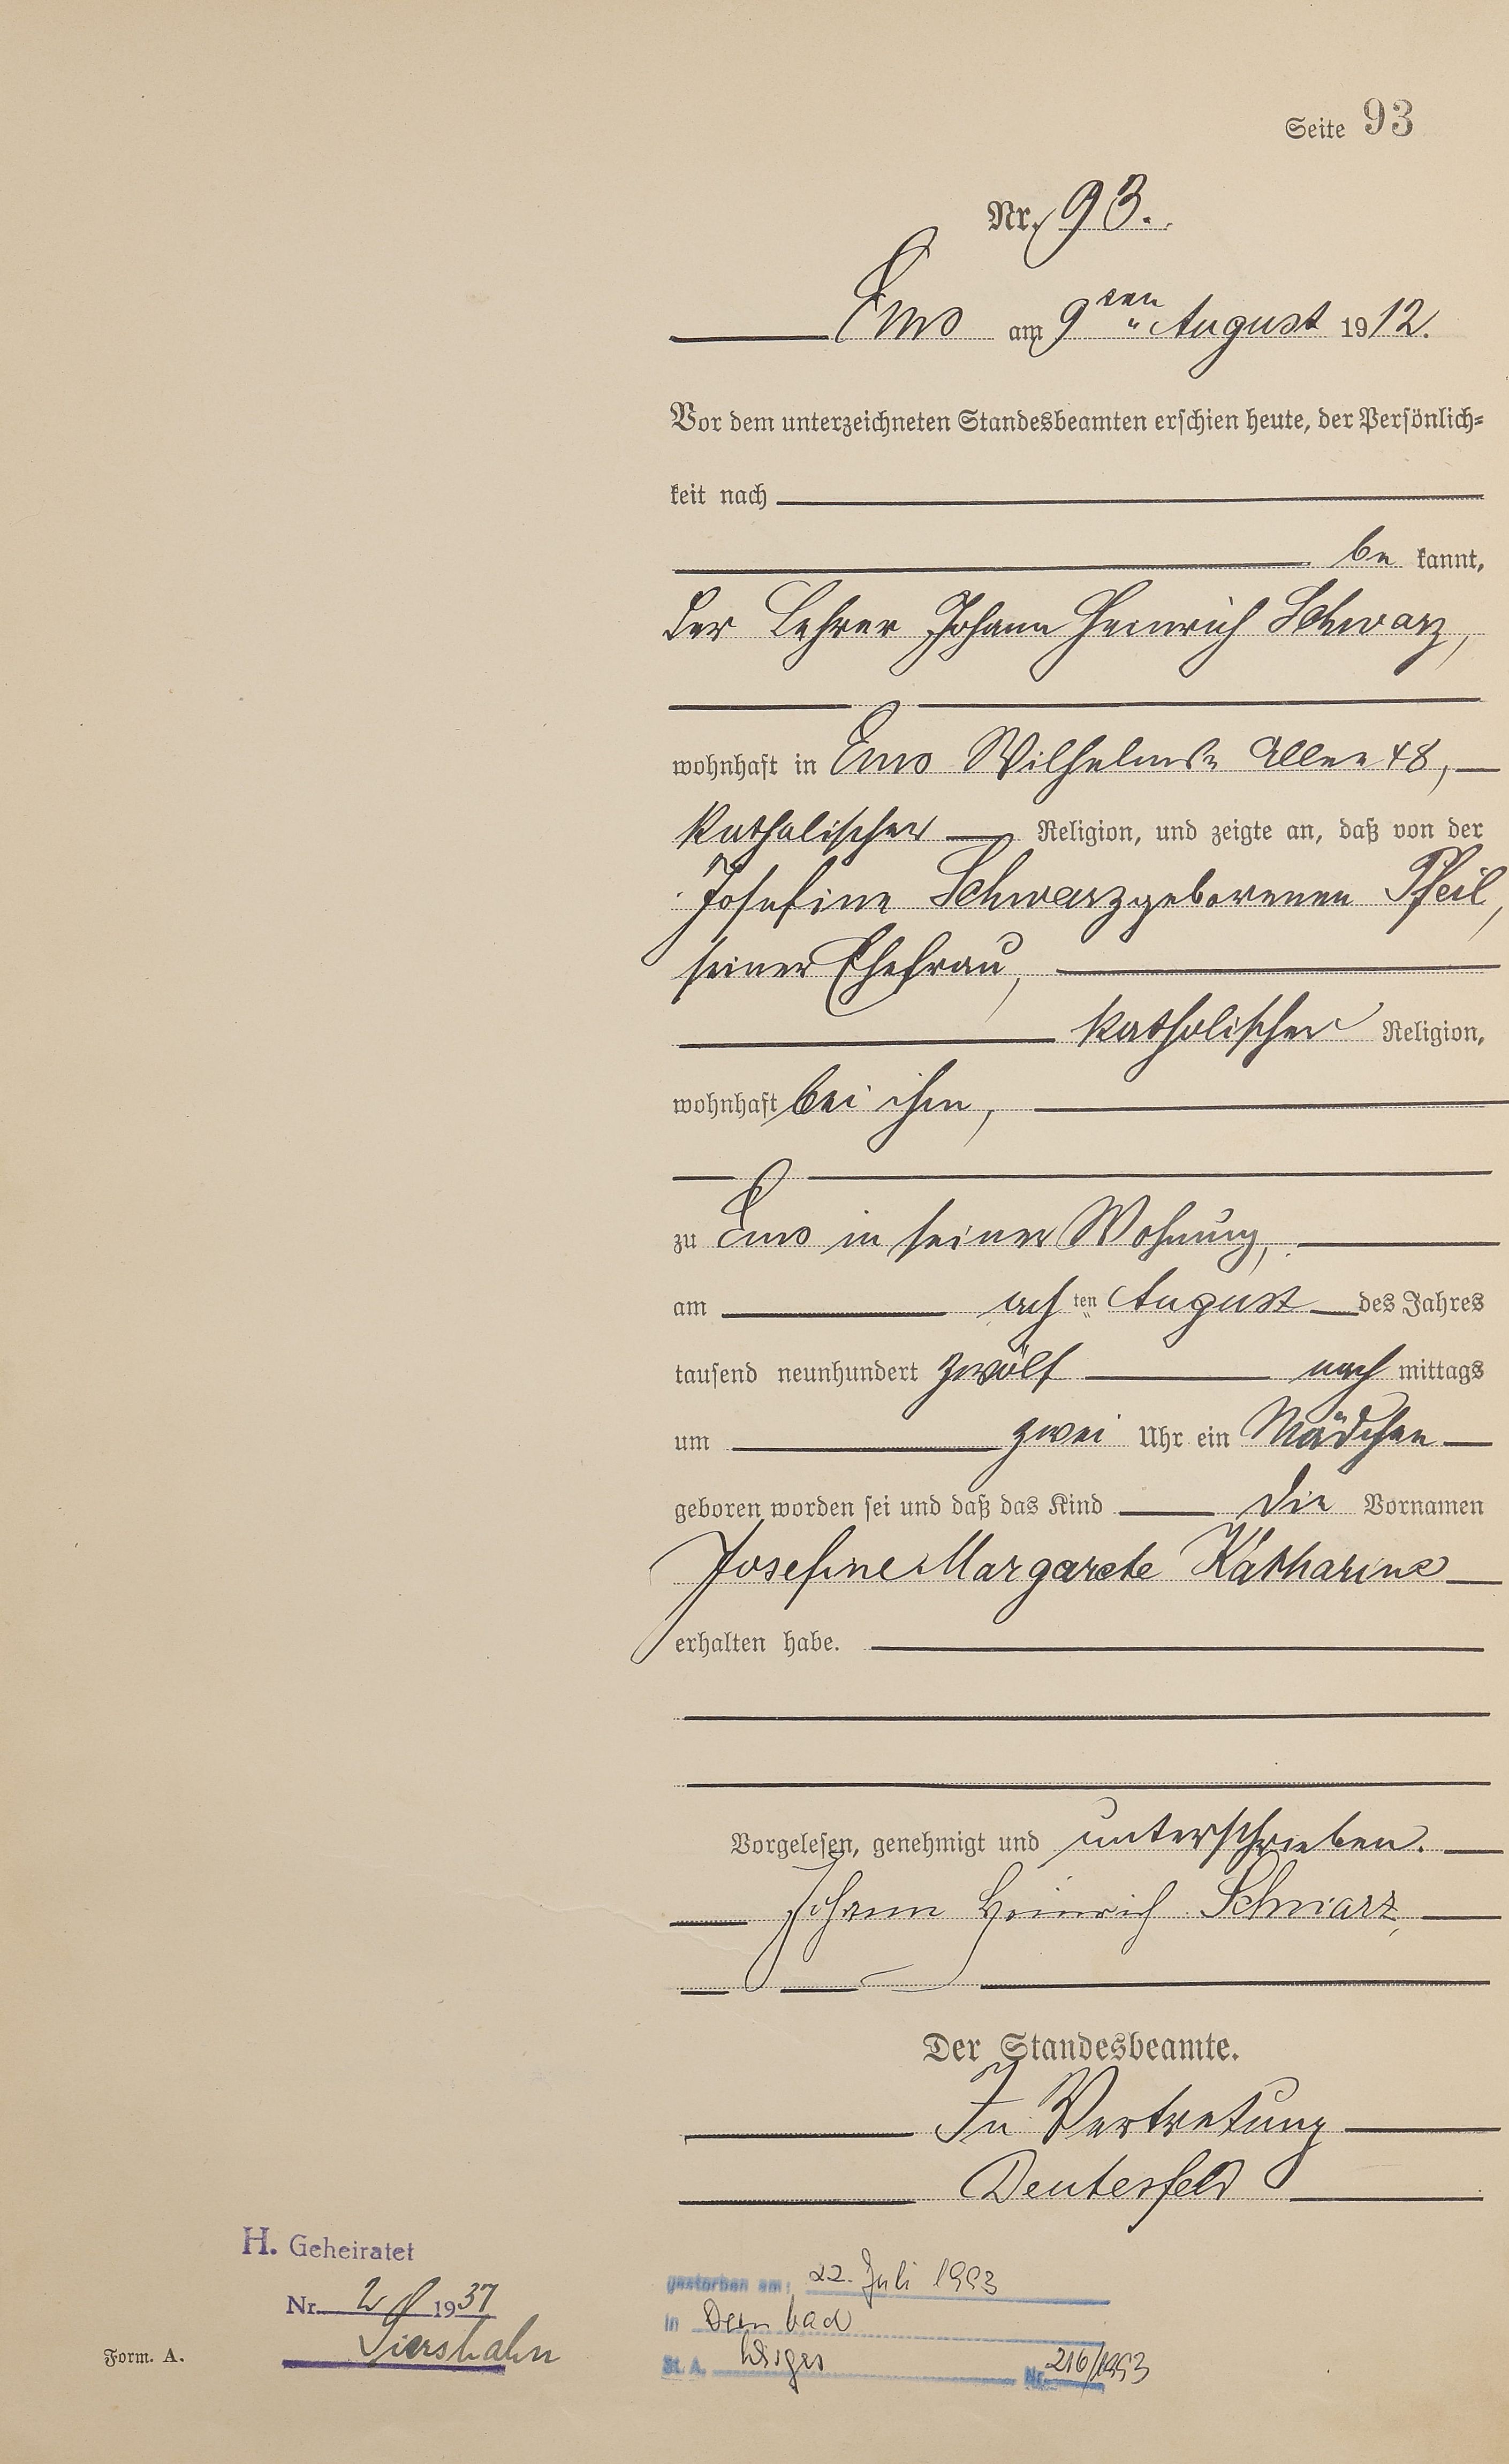 Seite 93
Nr. 93.
Ems am 9ten August 1912.
Vor dem unterzeichneten Standesbeamten erschien heute, der Persönlich-
keit nach
be kannt,
der Lehrer Johann Heinrich Schwarz,
wohnhaft in Ems Wilhelms Allee 48,
katholischer Religion, und zeigte an, daß von der
Josefine Schwarz geborenen Pfeil,
seiner Ehefrau,
katholischer Religion,
wohnhaft bei ihm,
zu Ems in seiner Wohnung,
am achten August des Jahres
tausend neunhundert zwölf nachmittags
um zwei Uhr ein Mädchen
geboren worden sei und daß das Kind die Vornamen
Josefine Margarete Katharina
erhalten habe.
Vorgelesen, genehmigt und unterschrieben.
Johann Heinrich Schwarz
Der Standesbeamte.
In Vertretung
Deutesfeld
H. Geheiratet
Nr. 1937
Siershahn
Form. A.
gestorben am: 22. Juli 1993
in Dernbach
St. A. Wirges Nr. 216/1993